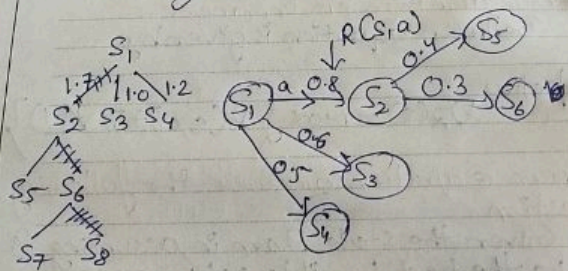 S1
1.7 1.0 1.2
S2 S3 S4
S5 S6
S7 S8
R(S,a)
S1 a 0.8 S2 0.4 S5
0.3 S6
0.6 S3
0.5 S4